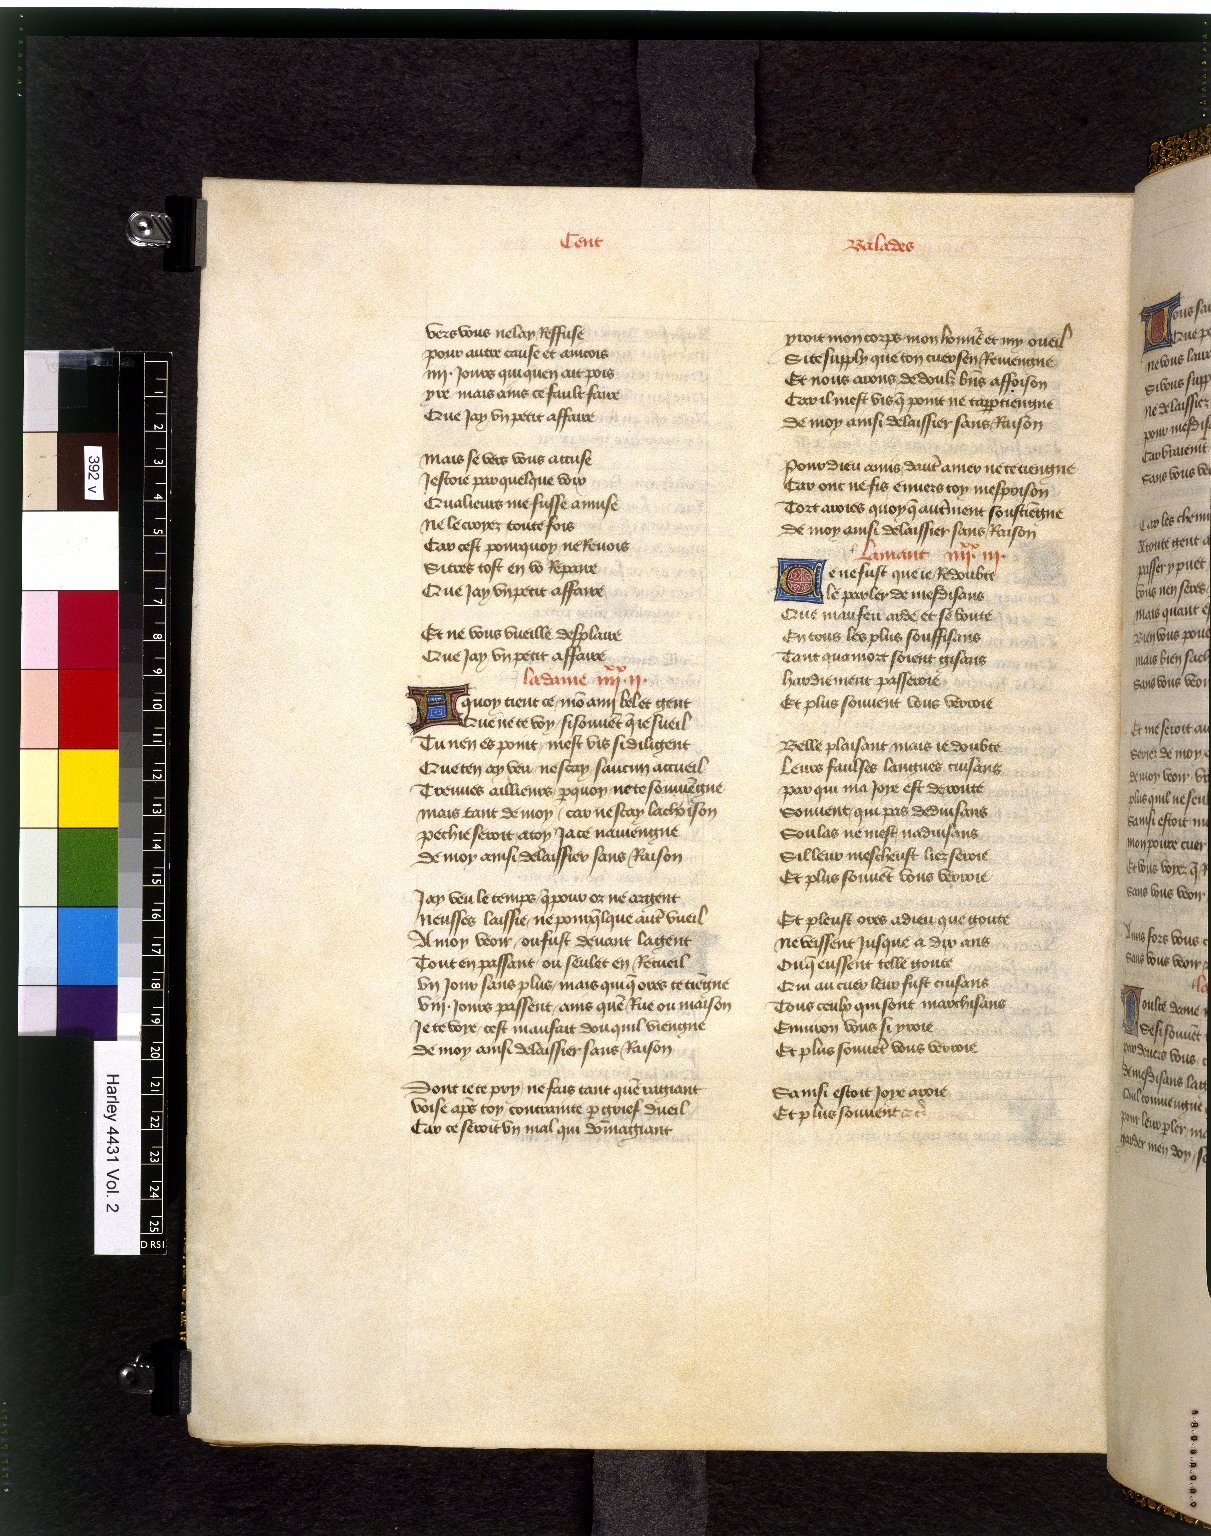 Cent
Balades
vers vous ne lay reffuse
pour autre cause et aincois
iiii. Jours qui quen ait pois
yre mais ains ce fault faire
Que Jay vn petit affaire
mais se vers vous accuse
Jestoie par quelque voix
Quailleurs me fusse amuse
ne le croyez toutefois
Car cest pourquoy ne Renois
Si tres tost en vo Repaire
Que Jay vn petit affaire
Et ne vous vueille desplaire
Que Jay vn petit affaire
la dame iiii.xx ii.
A quoy tient ce mō ami bel et gent
Que ne te voy si souuēt q̄ ie sueil
Tu nen es point mest vis si diligent
Que ten ay veu ne scay saucun accueil
Treuues aillieurs p̱quoy ne te souuiēgne
mais tant de moy car ne scay lachoison
pechie seroit a toy Ja te nauiengne
de moy ainsi delaissier sans Raison
Jay veu le temps q̄ pour or ne argent
Neusses laissie ne pour q̄lque aut̄ vueil
A moy veoir ou fust deuant la gent
Tout en passant ou seulet en Recueil
vn Jour sans plus mais qui q̄ ores te tiēgne
viii. Jours passent ains quē Rue ou maison
Je te voye cest maufait dou quil viengne
de moy ainsi delaissier sans Raison
Dont ie te pry ne fais tant quē ragiant
voise ap̄s toy contrainte p̱ grief dueil
Car ce seroit vn mal qui dōmagiant
yroit mon corps mon honne᷑ et my oueil
Si te supply que ton cuer sen Reuiengne
Et nous aions de doulz biēs a ffoison
Car il mest vis q̄ point ne tapptiengne
de moy ainsi delaissier sans Raison
pour dieu amis daut̄ amer ne te tiengne
Car onc ne fis enuers toy mesprison
Tort aroies quoy q̄ aut̄ment soustiēgne
de moy ainsi delaissier sans Raison
Lamant iiii.xx iii.
Ce ne fust que ie Redoubte
le parler de mesdisans
Que mau feu arde et se boute
En tous les plus souffisans
Tant qua mort soient gisans
hardiement passeroie
Et plus souuent vous verroie
Belle plaisant mais ie doubte
Leurs faulses langues cuisans
par qui ma Joye est deroute
Souuent qui pas deduisans
Soulas ne mest naduisans
Sil leur mescheust liez seroie
Et plus souuēt vous verroie
Et pleust ores a dieu que goute
Ne veissent Jusque a dix ans
Ou q̄ eussent telle goute
Qui au cuer leur fust cuisans
Tous ceulx qui sont marchisans
Enuiron vous si yroie
Et plus souuēt vous verroie
Sainsi estoit Joye aroie
Et plus souuent etc̄
392 v
Harley 4431 Vol. 2
1
2
3
4
5
7
8
9
10
11
12
13
14
15
16
17
18
19
20
21
22
23
24
25